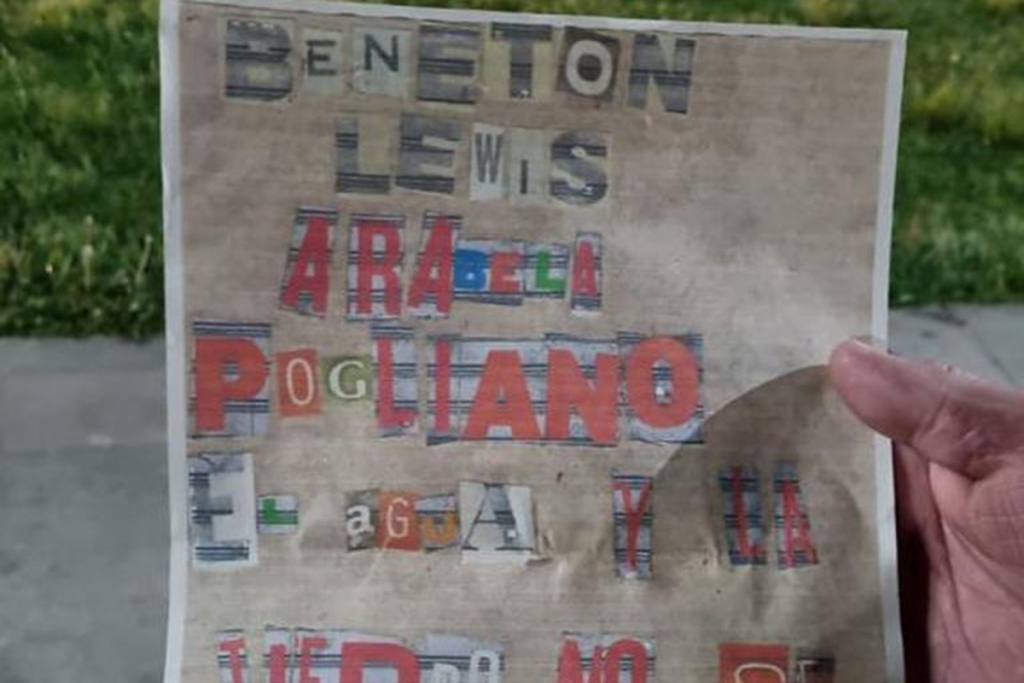 BENETON
LEWIS
ARABELA
POGLIANO
EL aGUA Y LA
TIERRA NO SE